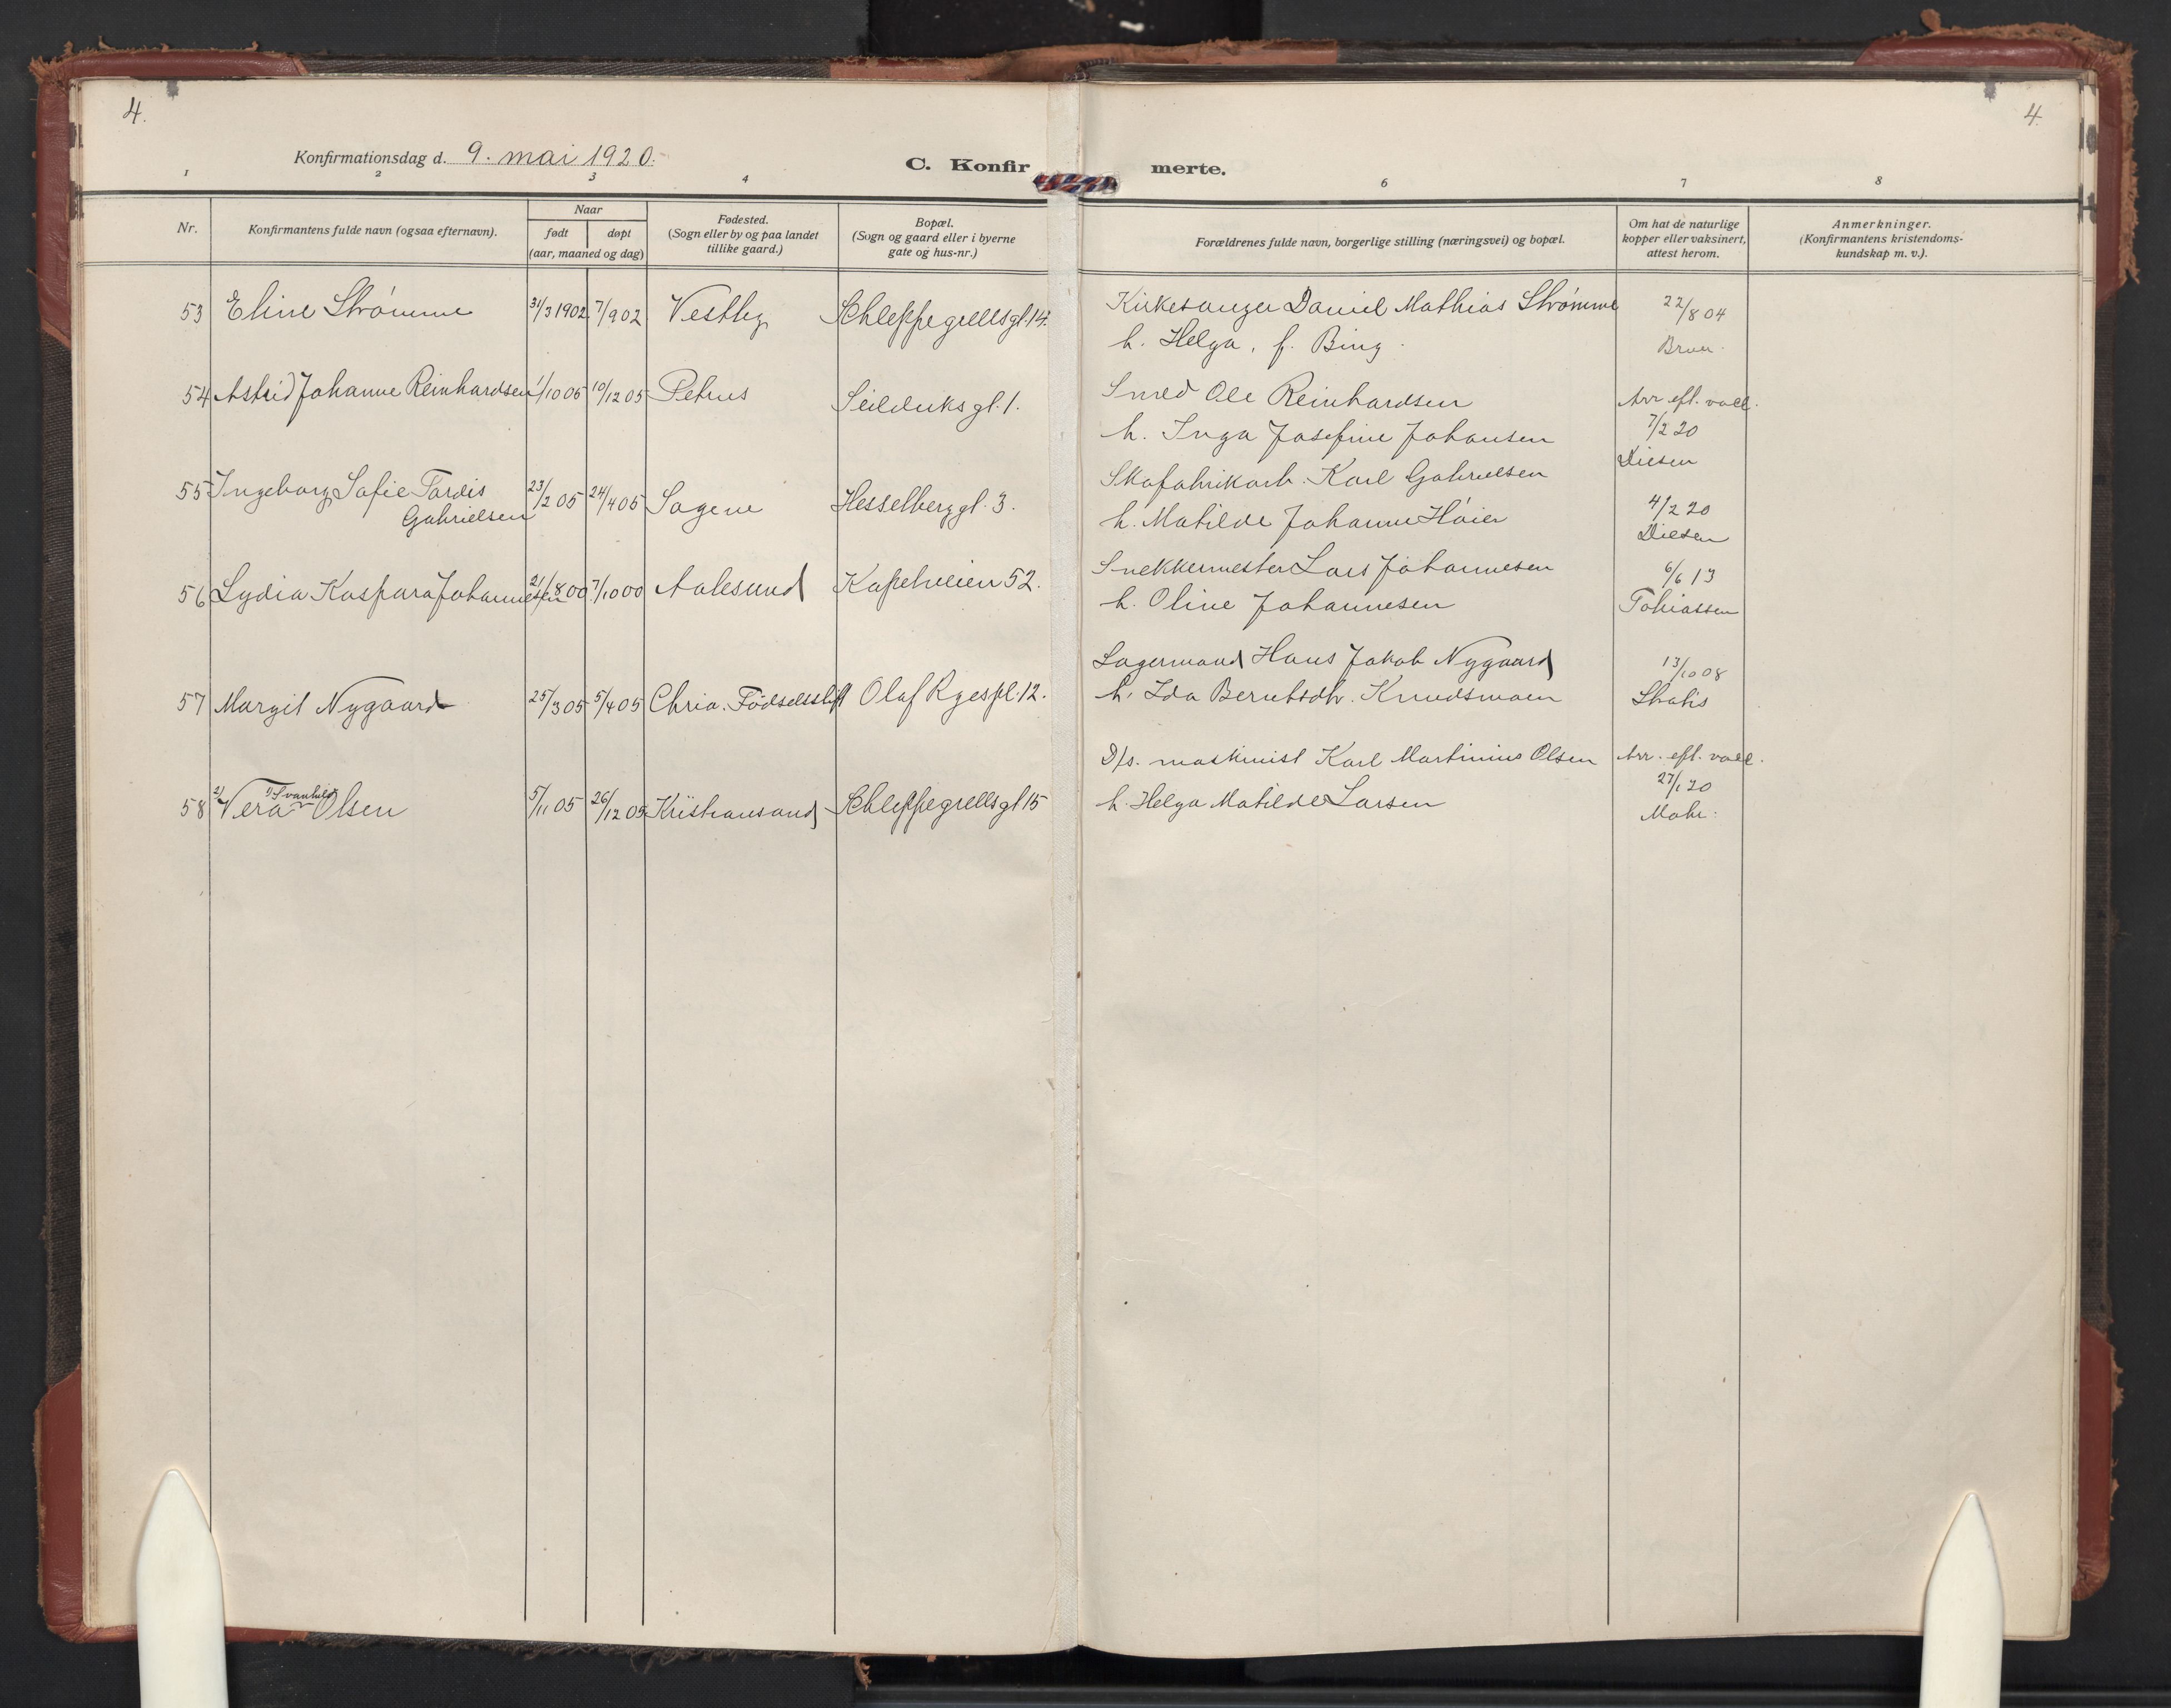 4.
4.
Konfirmationsdag d. 9. mai 1920.
C. Konfir merte.
1 2 3 4 6 7 8
Nr.
Konfirmantens fulde navn (ogsaa efternavn).
Naar
født
døpt
(aar, maaned og dag)
Fødested.
(Sogn eller by og paa landet
tillike gaard.)
Bopæl.
(Sogn og gaard eller i byerne
gate og hus-nr.)
Forældrenes fulde navn, borgerlige stilling (næringsvei) og bopæl.
Om hat de naturlige
kopper eller vaksinert,
attest herom.
Anmerkninger.
(Konfirmantens kristendoms-
kundskap m. v.).
53 Eline Strømme 31/3 1902 7/9 02 Vestby Schleppegrellsgt. 14. Kirkesanger Daniel Mathias Strømme 22/8 04
h. Helga, f. Bing.
54 Astrid Johanne Reinhardsen 1/10 05 10/12 05 Petrus Seilduksgt. 1. Smed Ole Reinhardsen Arr eft. vacc.
h. Inga Josefine Johansen 7/2 20
Diesen
55 Ingeborg Sofie Tordis 23/2 05 24/4 05 Sagene Hesselberggt. 3. Skofabrikarb. Karl Gabrielsen
Gabrielsen h. Matilde Johanne Høier 4/2 20
Diesen
56 Lydia Kaspara Johannesen 21/8 00 7/10 00 Aalesund Kapelveien 52. Snekkermester Lars Johannesen 6/6 13
h. Oline Johannesen Tobiassen
57 Margit Nygaard 25/3 05 5/4 05 Chria. Fødselsstift Olaf Ryespl. 12. Lagermand Hans Jakob Nygaard 13/10 08
h. Ida Berntsdtr. Knudsmoen
58 2) Vera 1) Svanhild Olsen 5/11 05 26/12 05 Kristiansand Schleppegrellsgt 15 D/s. maskinist Karl Martinius Olsen Arr. eft. vacc.
h. Helga Matilde Larsen 27/1 20